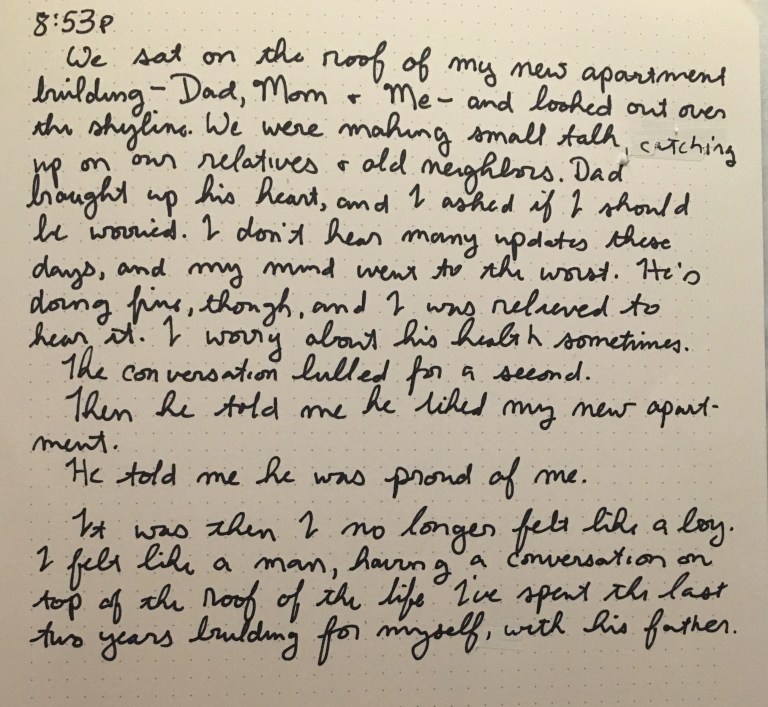 8:53P
We sat on the roof of my new apartment
building - Dad, Mom + Me - and looked out over
the skyline. We were making small talk, catching
up on our relatives + old neighbors. Dad
brought up his heart, and I asked if I should
be worried. I don't hear many updates these
days, and my mind went to the worst. He's
doing fine, though, and I was relieved to
hear it. I worry about his health sometimes.
The conversation lulled for a second.
Then he told me he liked my new apart-
ment.
He told me he was proud of me.
It was then I no longer felt like a boy.
I felt like a man, having a conversation on
top of the roof of the life I've spent the last
two years building for myself, with his father.